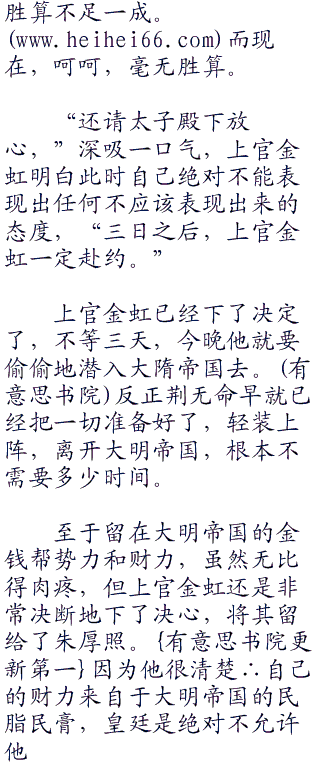 胜算不足一成。
(www.heihei66.com)而现
在，呵呵，毫无胜算。
“还请太子殿下放
心，”深吸一口气，上官金
虹明白此时自己绝对不能表
现出任何不应该表现出来的
态度，“三日之后，上官金
虹一定赴约。”
上官金虹已经下了决定
了，不等三天，今晚他就要
偷偷地潜入大隋帝国去。(有
意思书院)反正荆无命早就已
经把一切准备好了，轻装上
阵，离开大明帝国，根本不
需要多少时间。
至于留在大明帝国的金
钱帮势力和财力，虽然无比
得肉疼，但上官金虹还是非
常决断地下了决心，将其留
给了朱厚照。{有意思书院更
新第一}因为他很清楚∴自己
的财力来自于大明帝国的民
脂民膏，皇廷是绝对不允许
他